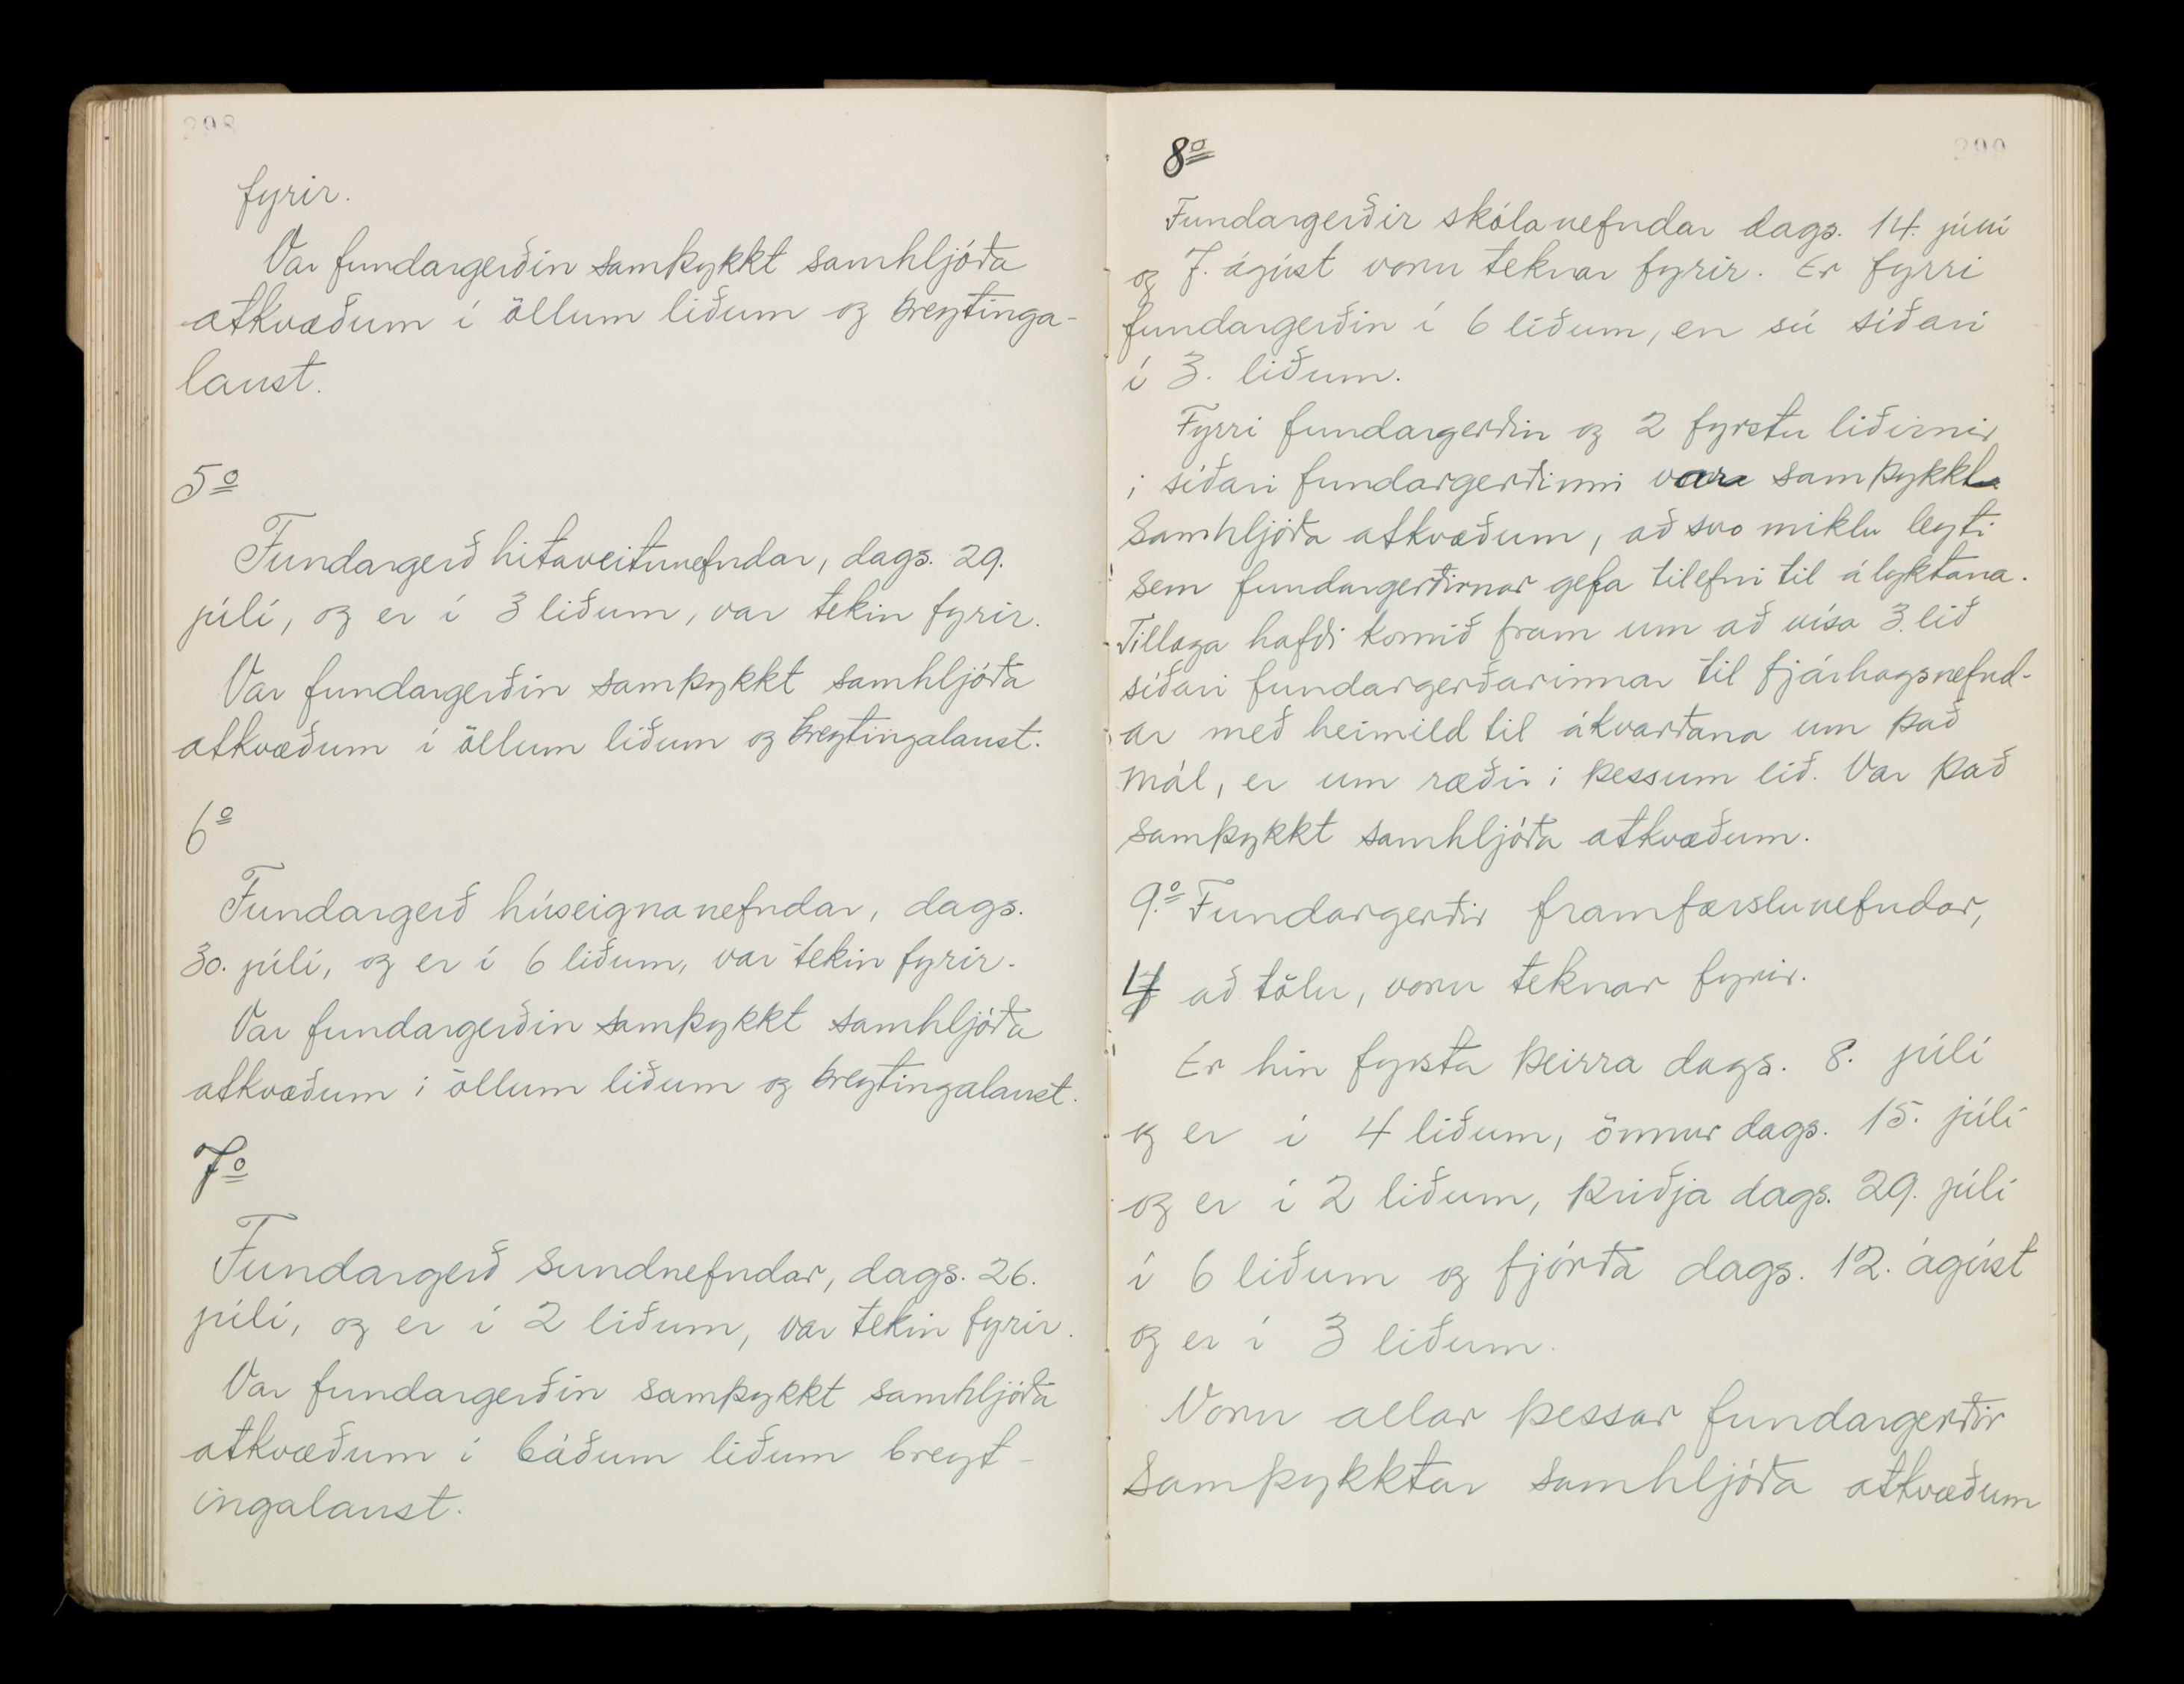 398
fyrir.
Var fundargerðin samþykkt samhljóða
atkvæðum í öllum liðum og breytinga-
laust.
5º
Fundargerð hitaveitunefndar, dags. 29.
júlí, og er í 3 liðum, var tekin fyrir.
Var fundargerðin samþykkt samhljóða
atkvæðum í öllum liðum og breytingalaust.
6º
Fundargerð húseignanefndar, dags.
30. júlí, og er í 6 liðum, var tekin fyrir.
Var fundargerðin samþykkt samhljóða
atkvæðum i öllum liðum og breytingalaust.
7º
Fundargerð sundnefndar, dags. 26.
júlí, og er í 2 liðum, var tekin fyrir.
Var fundargerðin samþykkt samhljóða
atkvæðum í báðum liðum breyt-
ingalaust.
399
8º
Fundargerðir skólanefndar dags. 14. júní
og 7. ágúst voru teknar fyrir. Er fyrri
fundargerðin í 6 liðum, en sú síðari
í 3. liðum.
Fyrri fundargerðin og 2 fyrstu liðirnir
i síðari fundargerðinni samþykkt
samhljóða atkvæðum, að svo miklu leyti
sem fundargerðirnar gefa tilefni til ályktana.
Tillaga hafði komið fram um að vísa 3. lið
síðari fundargerðarinnar til fjárhagsnefnd-
ar með heimild til ákvarðana um það
mál, er um ræðir i þessum lið. Var það
samþykkt samhljóða atkvæðum.
9.º Fundargerðir framfærslunefndar,
4 að tölu, voru teknar fyrir.
Er hin fyrsta þeirra dags. 8. júlí
og er í 4 liðum, önnur dags. 15. júlí
og er í 2 liðum, þriðja dags. 29. júlí
í 6 liðum og fjórða dags. 12. ágúst
og er í 3 liðum.
Voru allar þessar fundargerðir
samþykktar samhljóða atkvæðum